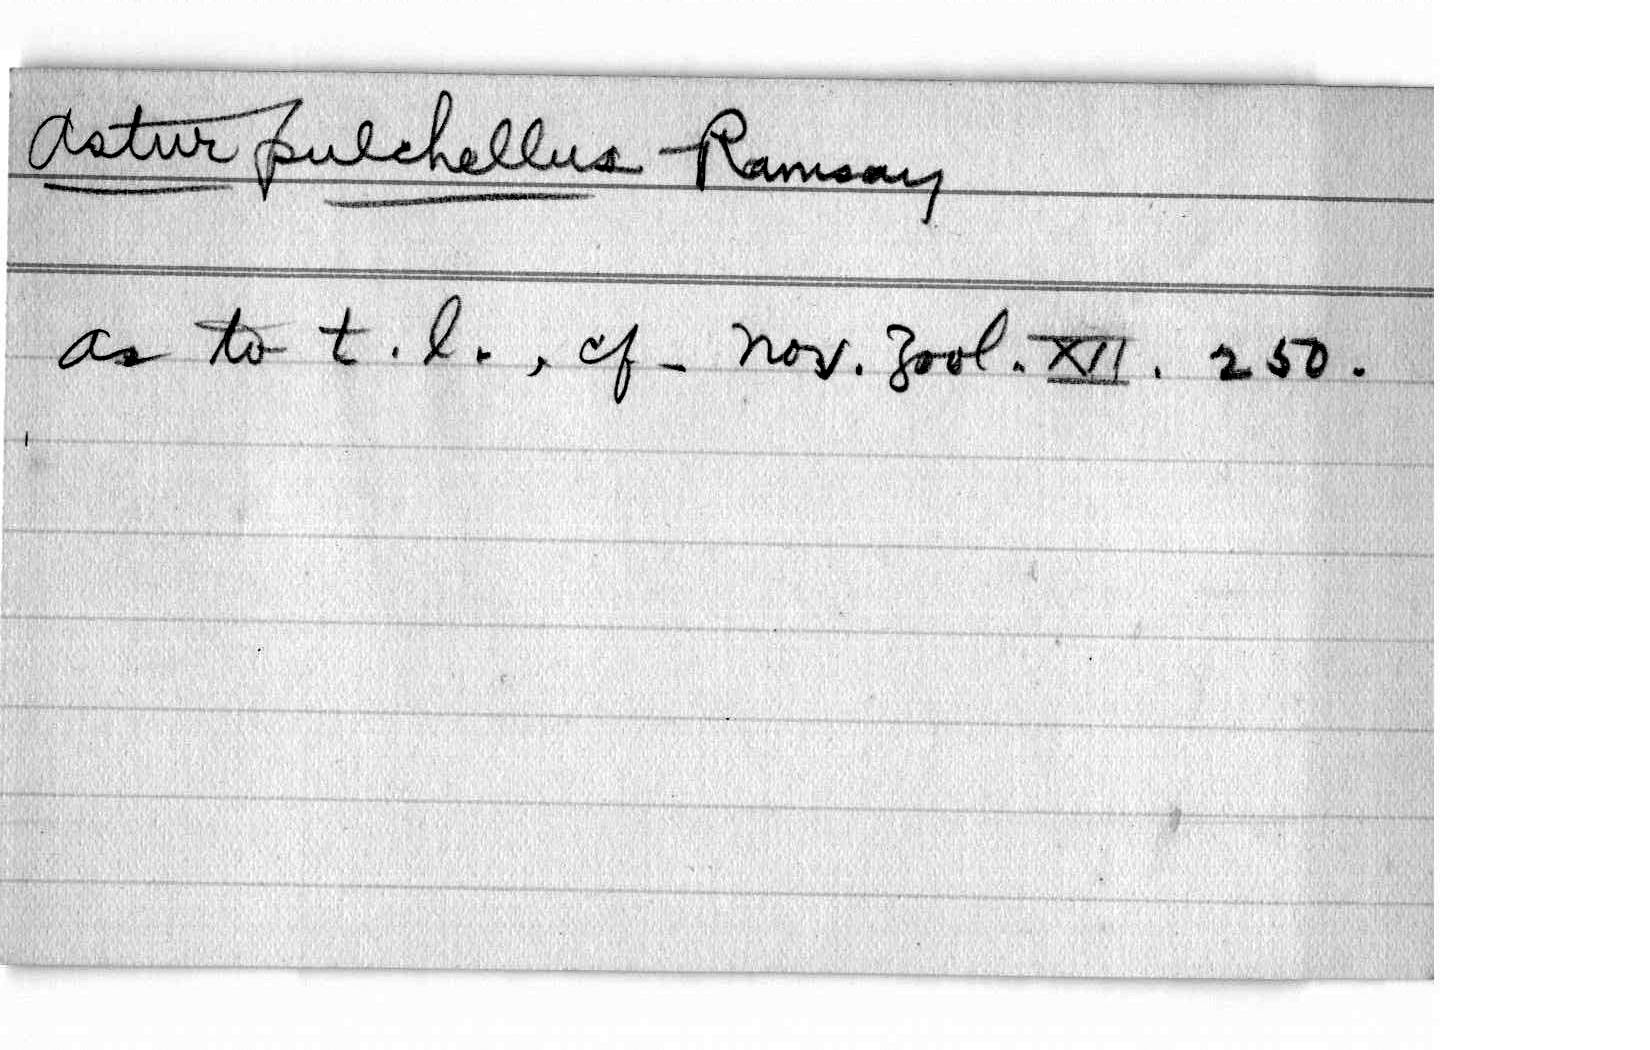 Astur pulchellus Ramsay
as to t. l., cf. Nov. Zool. XII. 250.